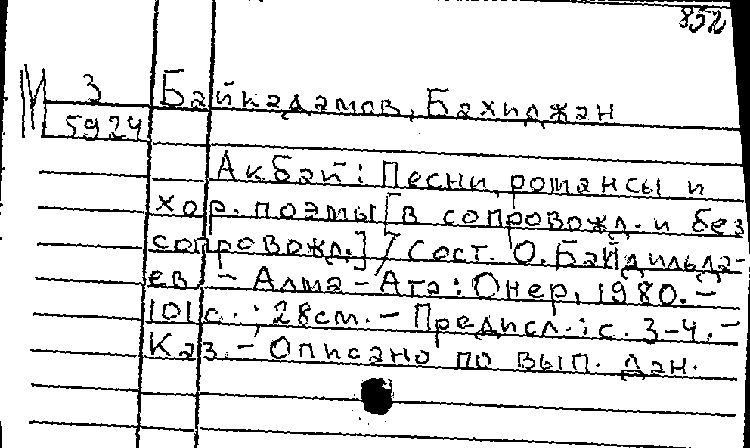 852
М З
5924
Байкадамов, Бахиджан
Акбай: Песни, романсы и
хор. поэмы [в сопровожд. и без
сопровожд.] / Сост. О. Байдильда-
ев. – Алма-Ата: Онер, 1980. –
101 с.; 28см. – Предисл.: с. 3-4. –
Каз. – Описано по вып. дан.